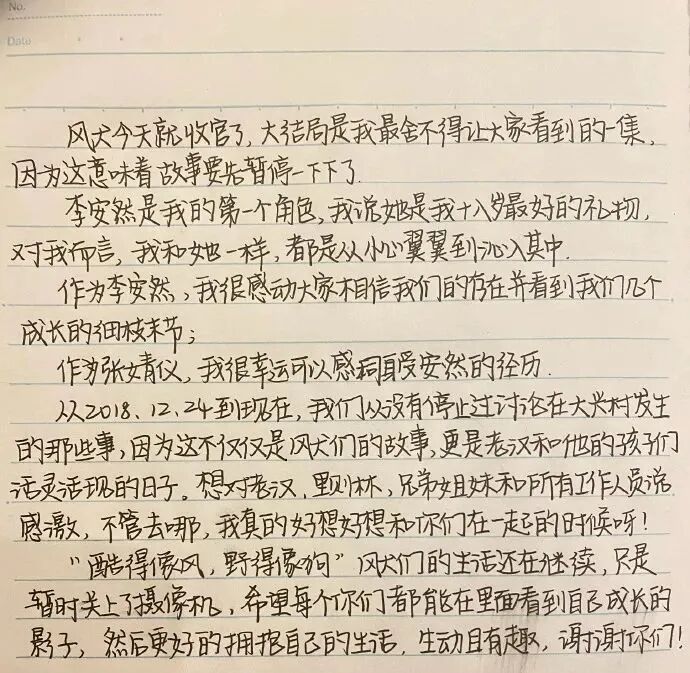 No.
Date
风犬今天就收官了，大结局是我最舍不得让大家看到的一集，
因为这意味着故事要先暂停一下下了.
李安然是我的第一个角色，我说她是我十八岁最好的礼物，
对我而言，我和她一样，都是从小心翼翼到沁入其中.
作为李安然，我很感动大家相信我们的存在并看到我们几个
成长的细枝末节；
作为张婧仪，我很幸运可以感同身受安然的经历.
从2018.12.24到现在，我们从没有停止过讨论在大兴村发生
的那些事，因为这不仅仅是风犬们的故事，更是老汉和他的孩子们
活灵活现的日子。想对老汉，里则林，兄弟姐妹和所有工作人员说
感激，不管去哪，我真的好想好想和你们在一起的时候呀！
“酷得像风，野得像狗”风犬们的生活还在继续，只是
暂时关上了摄像机，希望每个你们都能在里面看到自己成长的
影子，然后更好的拥抱自己的生活，生动且有趣，谢谢你们！